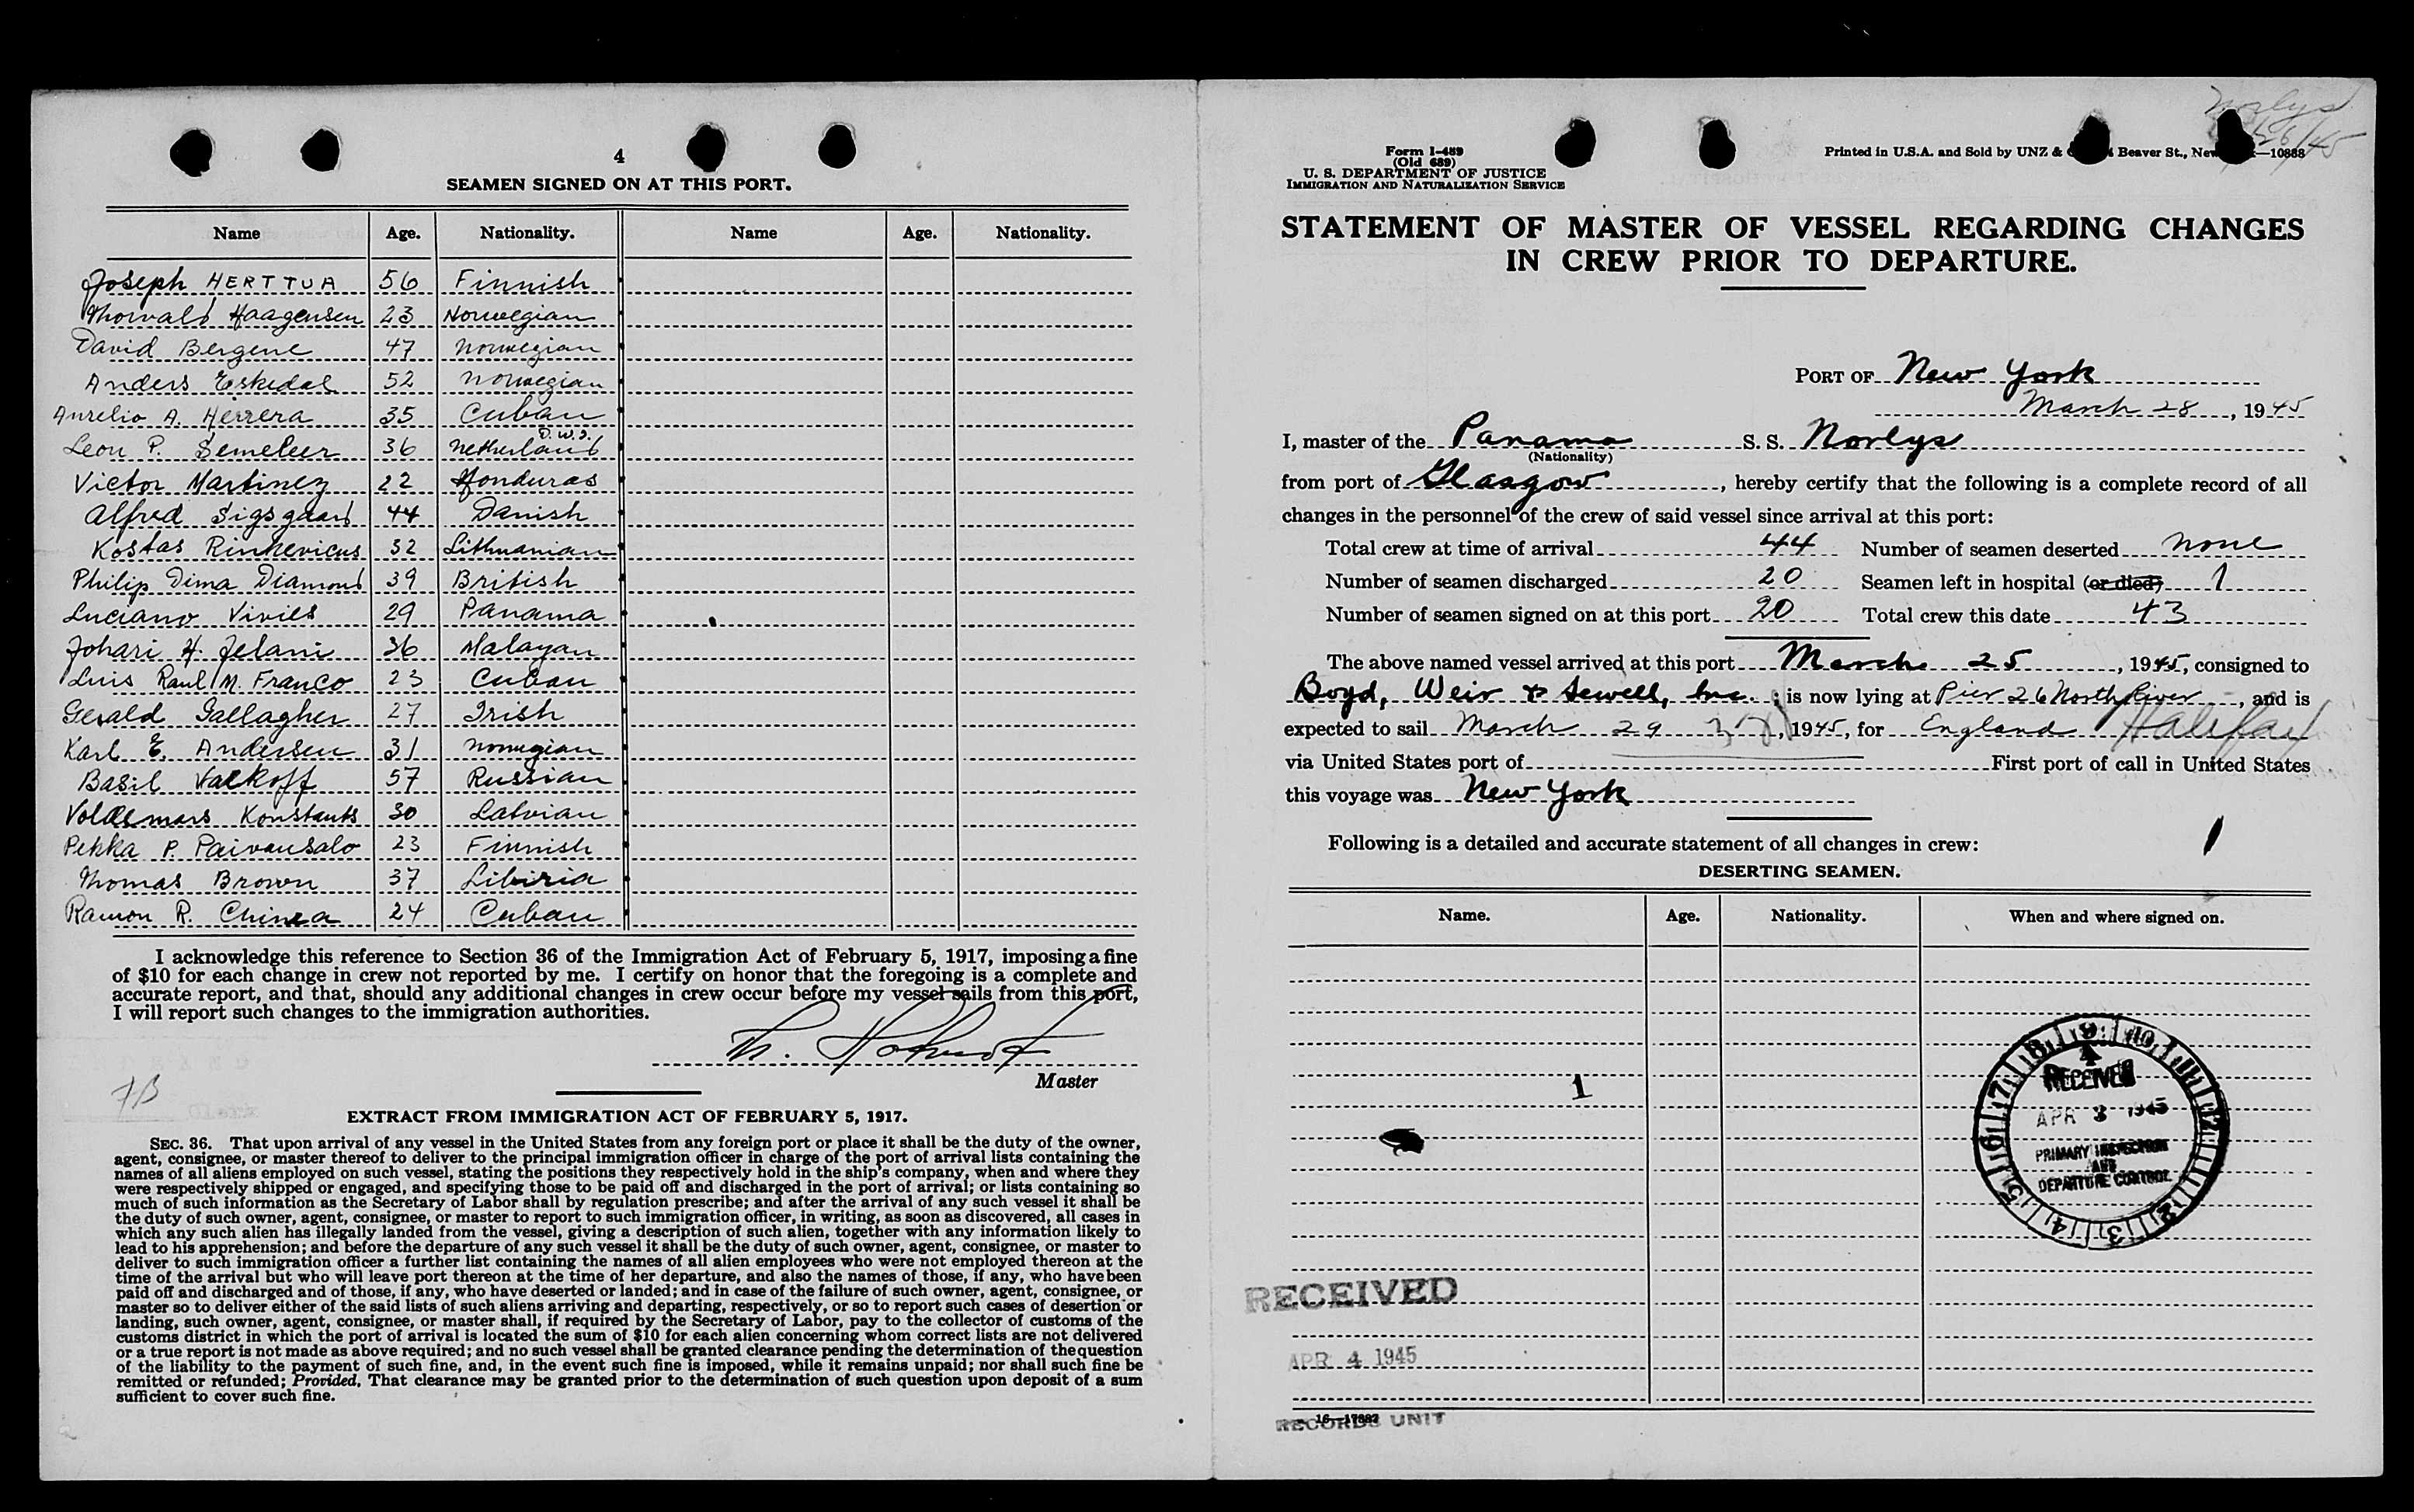 4
SEAMEN SIGNED ON AT THIS PORT.
Name Age. Nationality. Name Age. Nationality.
Joseph HERTTUA 56 Finnish
Thorvald Haagensen 23 Norwegian
David Bergene 47 Norwegian
Anders Eskedal 52 Norwegian
Aurelio A. Herrera 35 Cuban
Leon P. Semeleer 36 Netherland D.W.I.
Victor Martinez 22 Honduras
Alfred Sigsgaard 44 Danish
Kostas Rinkevicus 32 Lithuanian
Philip Dima Diamond 39 British
Luciano Vivies 29 Panama
Johari H. Jelani 36 Malayan
Luis Raul M. Franco 23 Cuban
Gerald Gallagher 27 Irish
Karl E. Andersen 31 Norwegian
Basil Valkoff 57 Russian
Voldemars Konstants 30 Latvian
Pekka P. Paivansalo 23 Finnish
Thomas Brown 37 Libiria
Ramon R. Chinea 24 Cuban
I acknowledge this reference to Section 36 of the Immigration Act of February 5, 1917, imposing a fine
of $10 for each change in crew not reported by me. I certify on honor that the foregoing is a complete and
accurate report, and that, should any additional changes in crew occur before my vessel sails from this port,
I will report such changes to the immigration authorities.
Master
EXTRACT FROM IMMIGRATION ACT OF FEBRUARY 5, 1917.
SEC. 36. That upon arrival of any vessel in the United States from any foreign port or place it shall be the duty of the owner,
agent, consignee, or master thereof to deliver to the principal immigration officer in charge of the port of arrival lists containing the
names of all aliens employed on such vessel, stating the positions they respectively hold in the ship's company, when and where they
were respectively shipped or engaged, and specifying those to be paid off and discharged in the port of arrival; or lists containing so
much of such information as the Secretary of Labor shall by regulation prescribe; and after the arrival of any such vessel it shall be
the duty of such owner, agent, consignee, or master to report to such immigration officer, in writing, as soon as discovered, all cases in
which any such alien has illegally landed from the vessel, giving a description of such alien, together with any information likely to
lead to his apprehension; and before the departure of any such vessel it shall be the duty of such owner, agent, consignee, or master to
deliver to such immigration officer a further list containing the names of all alien employees who were not employed thereon at the
time of the arrival but who will leave port thereon at the time of her departure, and also the names of those, if any, who have been
paid off and discharged and of those, if any, who have deserted or landed; and in case of the failure of such owner, agent, consignee, or
master so to deliver either of the said lists of such aliens arriving and departing, respectively, or so to report such cases of desertion or
landing, such owner, agent, consignee, or master shall, if required by the Secretary of Labor, pay to the collector of customs of the
customs district in which the port of arrival is located the sum of $10 for each alien concerning whom correct lists are not delivered
or a true report is not made as above required; and no such vessel shall be granted clearance pending the determination of the question
of the liability to the payment of such fine, and, in the event such fine is imposed, while it remains unpaid; nor shall such fine be
remitted or refunded; Provided, That clearance may be granted prior to the determination of such question upon deposit of a sum
sufficient to cover such fine.
Norlys
Form I-489
(Old 689)
U. S. DEPARTMENT OF JUSTICE
IMMIGRATION AND NATURALIZATION SERVICE
Printed in U.S.A. and Sold by UNZ & Beaver St., New —10888
STATEMENT OF MASTER OF VESSEL REGARDING CHANGES
IN CREW PRIOR TO DEPARTURE.
PORT OF New York
March 28, 1945
I, master of the Panama S. S. Norlys
(Nationality)
from port of Glasgow, hereby certify that the following is a complete record of all
changes in the personnel of the crew of said vessel since arrival at this port:
Total crew at time of arrival 44 Number of seamen deserted none
Number of seamen discharged 20 Seamen left in hospital (or died) 1
Number of seamen signed on at this port 20 Total crew this date 43
The above named vessel arrived at this port March 25, 1945, consigned to
Boyd, Weir & Sewell, Inc.; is now lying at Pier 26 North River, and is
expected to sail March 29, 1945, for England Halifax
via United States port of First port of call in United States
this voyage was New York
Following is a detailed and accurate statement of all changes in crew:
DESERTING SEAMEN.
Name. Age. Nationality. When and where signed on.
1
RECEIVED
APR 3 1945
PRIMARY INSPECTION
AND
DEPARTURE CONTROL
RECEIVED
APR 4 1945
RECORDS UNIT